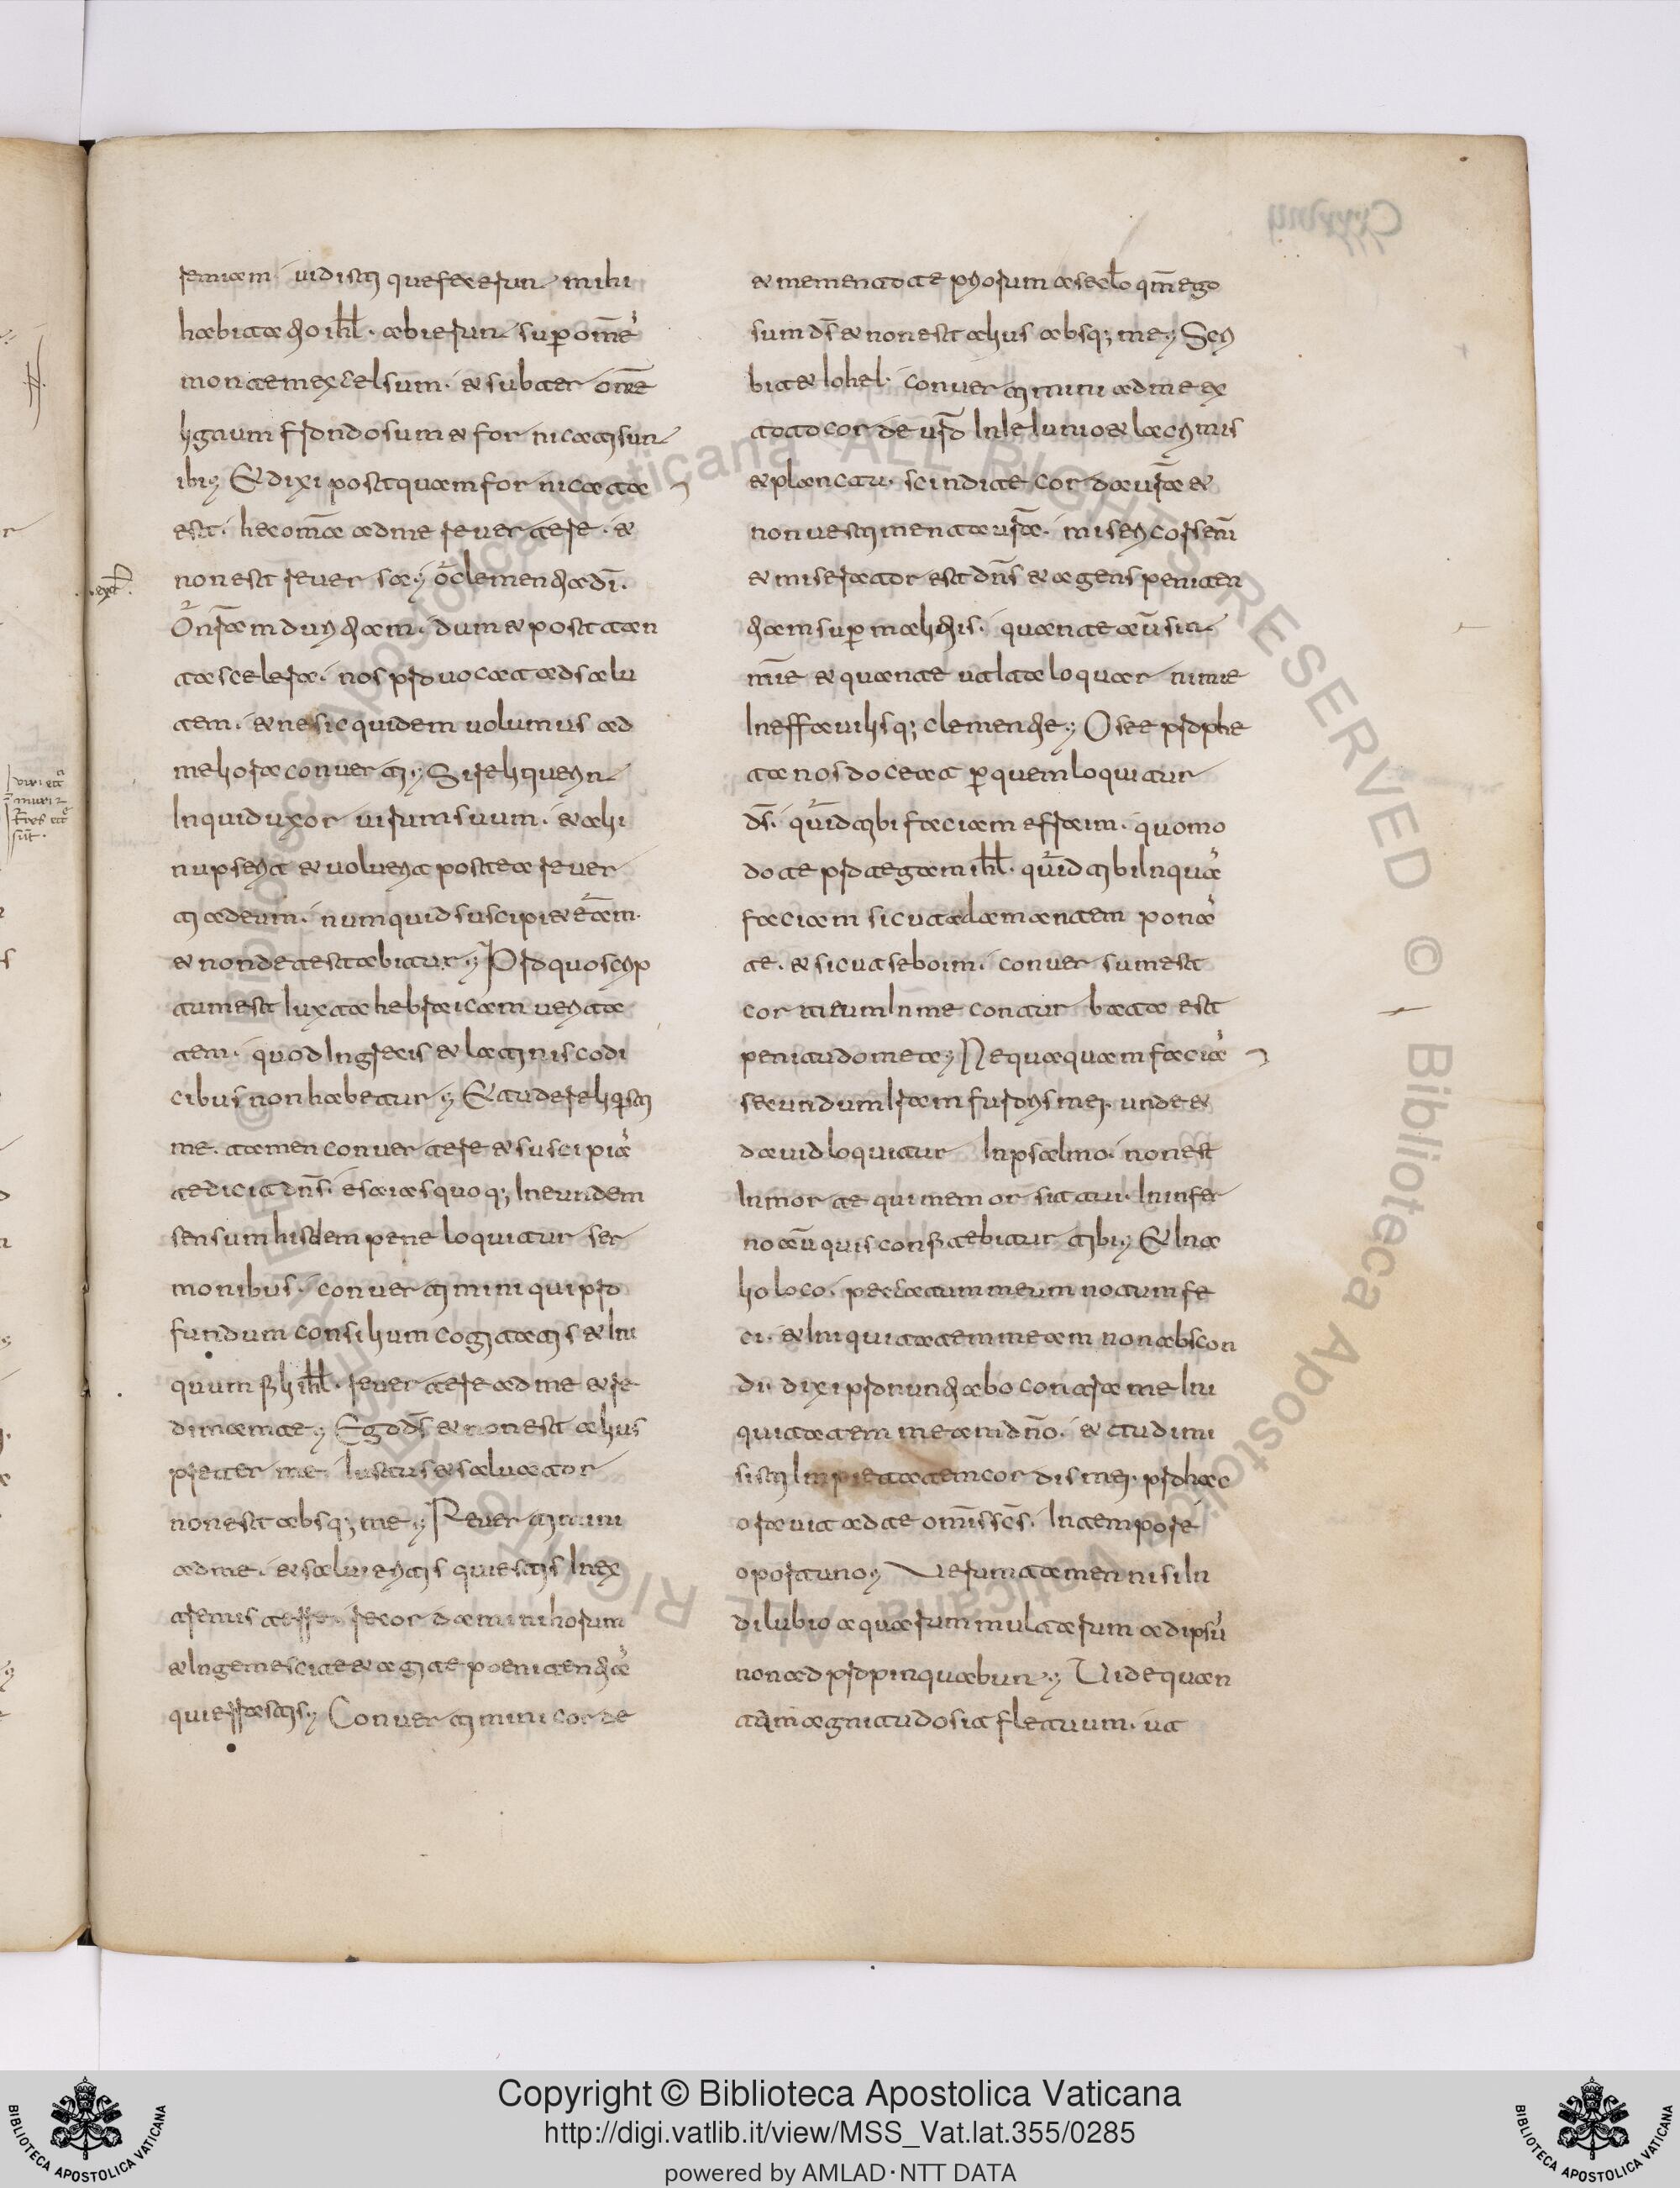 remiam. uidisti que fecerunt mihi
habitatio ihl̄. abierunt sup om̄e
montem excelsum. et subter om̄e
lignum frondosum et fornicati sunt
ibi; Et dixi postquam fornicata
est. hec om̄a ad me reuertere. et
non est reuersa; O clementia dī.
O nr̄am duritiam. dum et post tan
ta scelera. nos prouocat ad salu
tem. et ne sic quidem uolumus ad
meliora conuerti; Si reliquerit
inquid uxor uirum suum. et alii
nupserit et uoluerit postea reuer
ti ad eum. numquid suscipiet eam.
et non detestabitur; Pro quo scrip
tum est iuxta hebraicam uerita
tem. quod in grecis et latinis codi
cibus non habetur; Et tu dereliqsti
me. tamen conuertere et suscipiā
te dicit dn̄s. esaias quoq; in eundem
sensum hisdem pene loquitur ser
monibus. conuertimini qui pro
fundum consilium cogitatis et ini
quum fili ihl̄. reuertere ad me et re
dimam te; Ego ds̄ et non est alius
preter me iustus et saluator
non est absq; me; Reuertimini
ad me. et salui eritis qui estis in ex
tremis terre. recordamini horum
et ingemescite et agite poenitentiā
qui erratis; Conuertimini corde
et mementote priorum a seclo qm̄ ego
sum ds̄ et non est alius absq; me; Scri
bit et Iohel. conuertimini ad me ex
toto corde ur̄o in ieiunio et lacrimis
et planctu. scindite corda ur̄a et
non uestimenta ur̄a. misericors em̄
et miserator est dn̄s et agens peniten
tiam sup malitiis. quante aū sit
mīe et quante ut ita loquar nimie
ineffauilisq; clementie; Osee prophe
ta nos docet a p quem loquitur
ds̄. quid tibi faciam effraim. quomo
do te protegam ihl̄. quid tibi inquā
faciam sicut adamantem ponā
te. et sicut seboim. conuersum est
cor meum in me conturbata est
penitudo mea; Nequaquam faciā
secundum iram furoris mei. unde et
dauid loquitur in psalmo. non est
in morte qui memor sit tui. in infer
no aū quis confitebitur tibi; Et in a
lio loco. peccatum meum notum fe
ci. et iniquitatem meam non abscon
di. dixi pronuntiabo contra me ini
quitatem meam dn̄o. et tu dimi
sisti inpietatem cordis mei. pro hac
orauit ad te omīs scs̄. in tempore
oportuno; Uerumtamen nisi in
dilubio aquarum multarum ad ipsū
non adpropinquabunt; Uide quan
ta magnitudo sit fletuum. ut
Copyright © Biblioteca Apostolica Vaticana
http://digi.vatlib.it/view/MSS_Vat.lat.355/0285
powered by AMLAD·NTT DATA
BIBLIOTECA APOSTOLICA VATICANA
BIBLIOTECA APOSTOLICA VATICANA